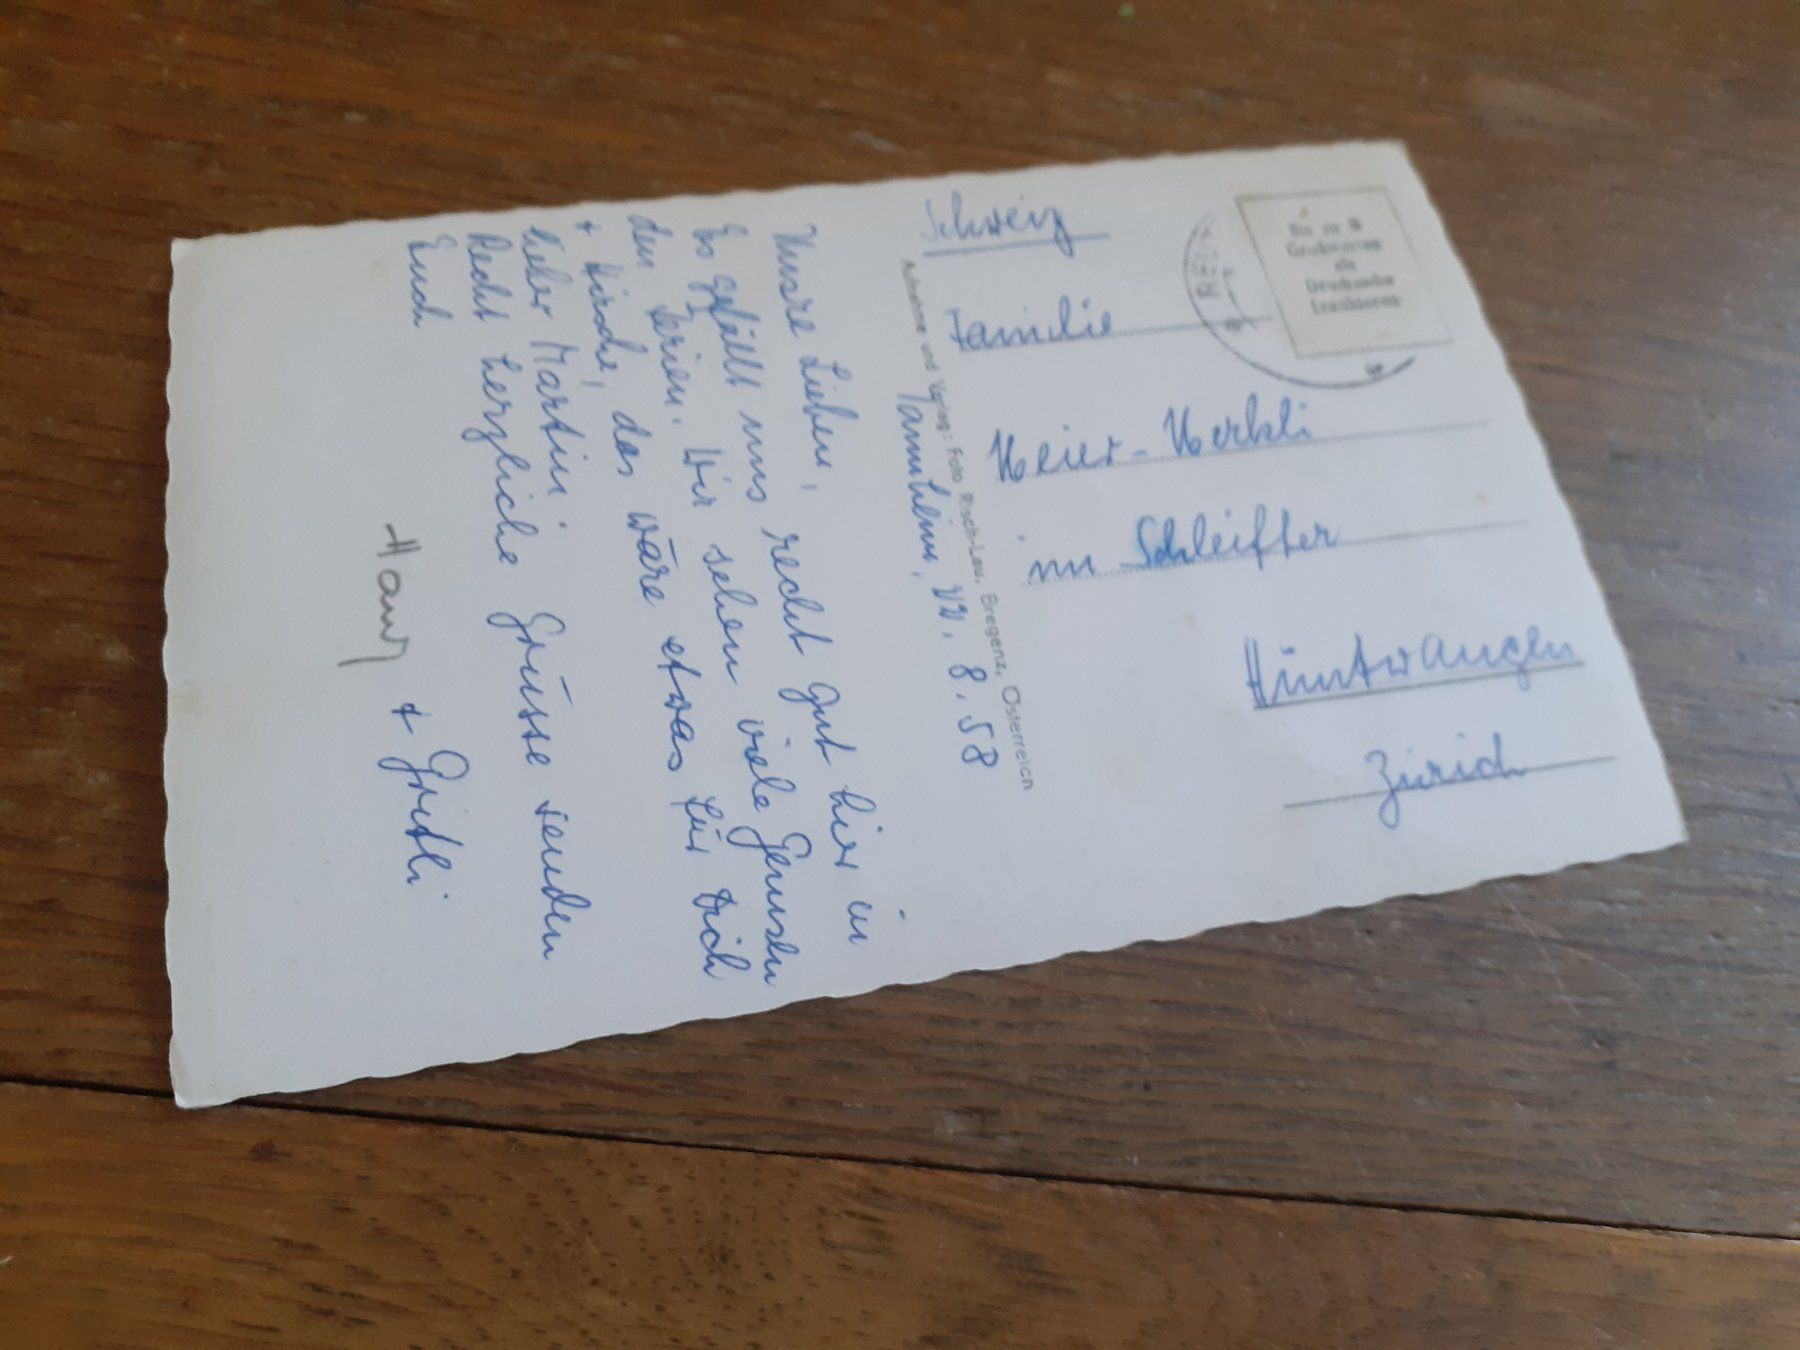 Tannheim, 22. 8. 58
Unsre Lieben,
Es gefällt uns recht gut hier in
den Ferien. Wir sehen viele Gemsen
+ Hirsche, das wäre etwas für Dich
lieber Martin.
Recht herzliche Grüsse senden
Euch
Hans + Gritli
Aufnahme und Verlag: Foto Risch-Lau, Bregenz, Österreich
Bis zu 5
Grußworten
als
Drucksache
frankieren
Schweiz
Familie
Meier-Merkli
im Schleifter
Hüntwangen
Zürich